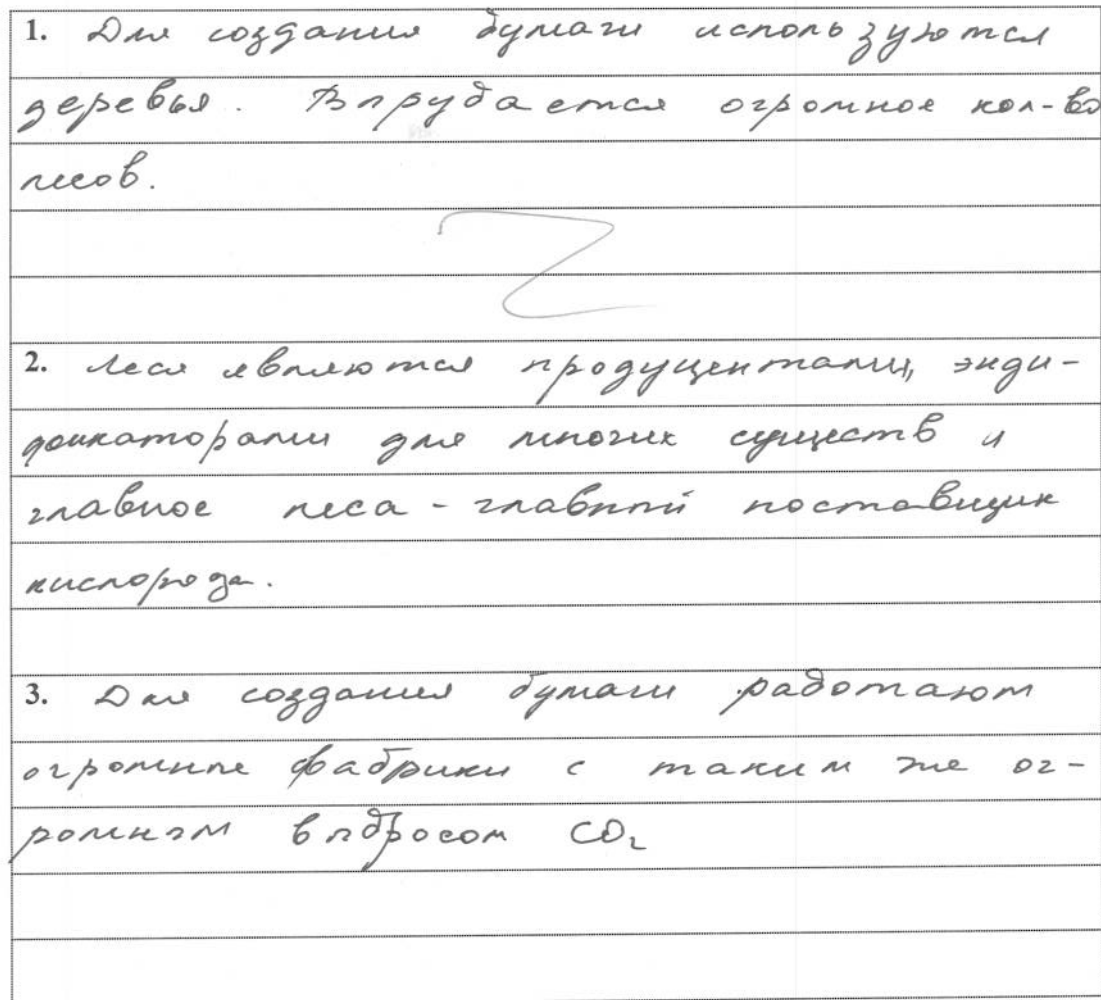 1. Для создания бумаги используются
деревья. Вырубается огромное кол-во
лесов.
2. Леса являются продуцентами, энди-
фикаторами для многих существ и
главное леса - главный поставщик
кислорода.
3. Для создания бумаги работают
огромные фабрики с таким же ог-
ромным выбросом CO₂